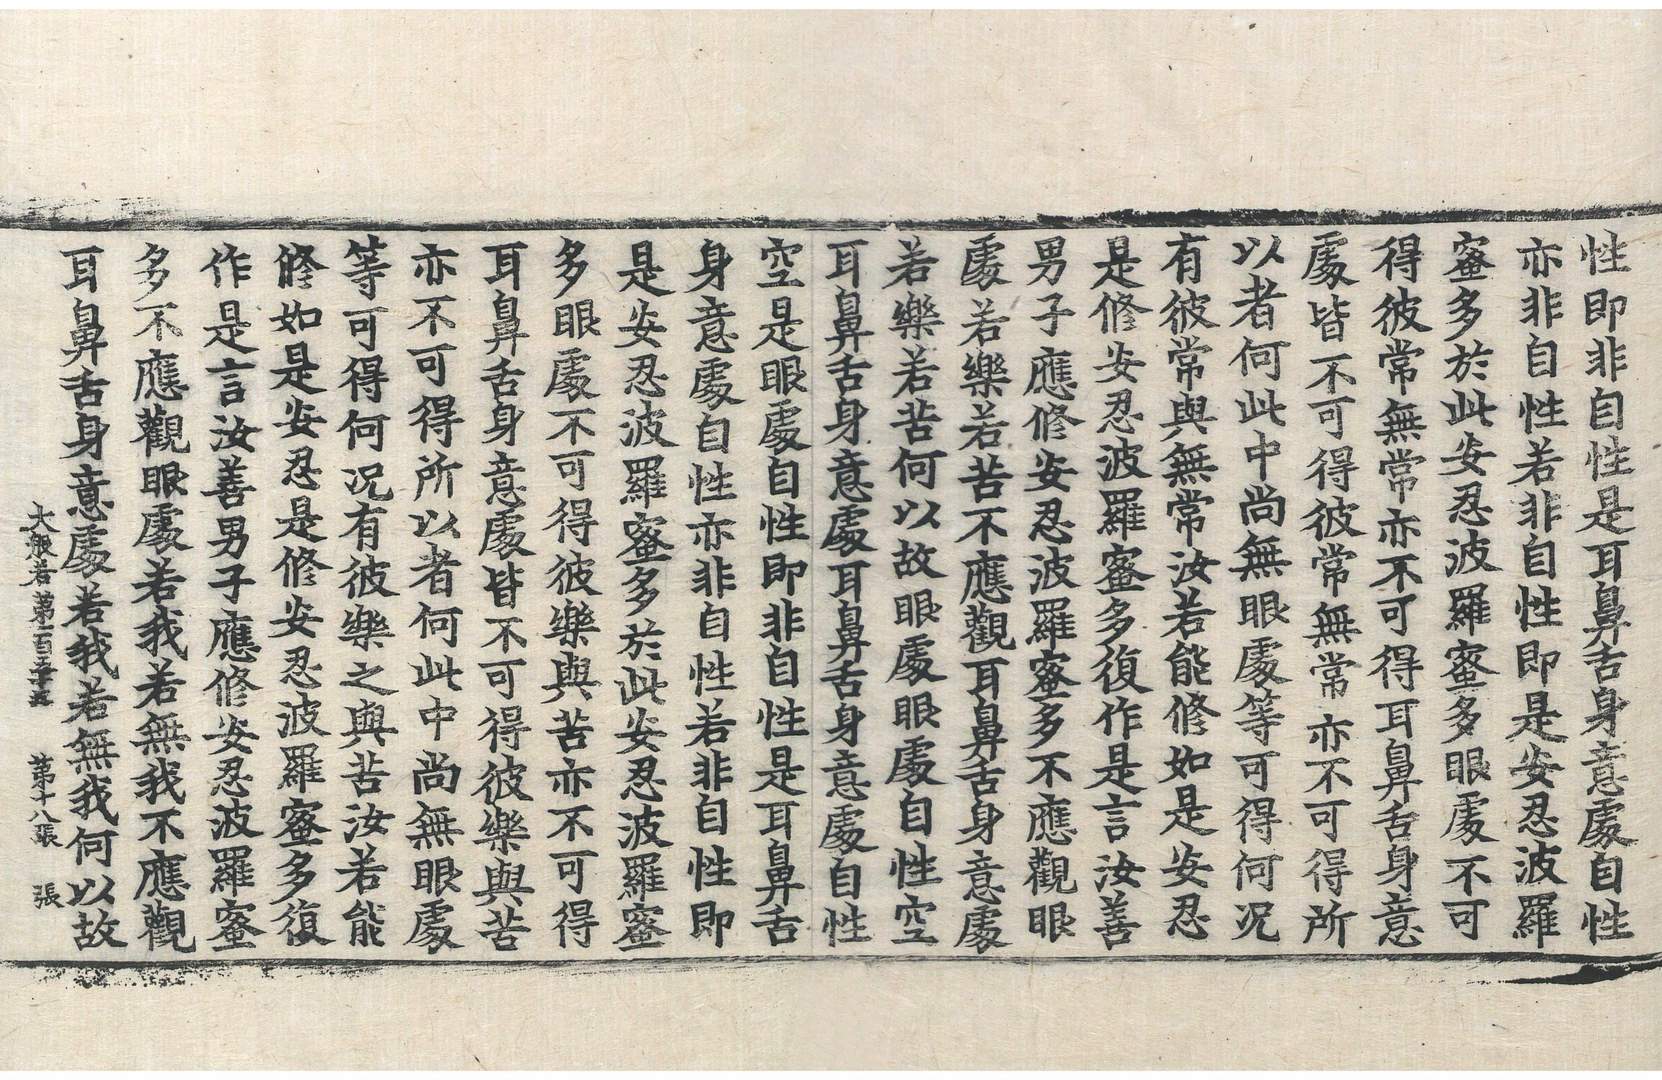 性即非自性是耳鼻舌身意處自性
亦非自性若非自性即是安忍波羅
蜜多於此安忍波羅蜜多眼處不可
得彼常無常亦不可得耳鼻舌身意
處皆不可得彼常無常亦不可得所
以者何此中尚無眼處等可得何況
有彼常與無常汝若能修如是安忍
是修安忍波羅蜜多復作是言汝善
男子應修安忍波羅蜜多不應觀眼
處若樂若苦不應觀耳鼻舌身意處
若樂若苦何以故眼處眼處自性空
耳鼻舌身意處耳鼻舌身意處自性
空是眼處自性即非自性是耳鼻舌
身意處自性亦非自性若非自性即
是安忍波羅蜜多於此安忍波羅蜜
多眼處不可得彼樂與苦亦不可得
耳鼻舌身意處皆不可得彼樂與苦
亦不可得所以者何此中尚無眼處
等可得何況有彼樂之與苦汝若能
修如是安忍是修安忍波羅蜜多復
作是言汝善男子應修安忍波羅蜜
多不應觀眼處若我若無我不應觀
耳鼻舌身意處若我若無我何以故
大般若第一百五十五 第十八張 張